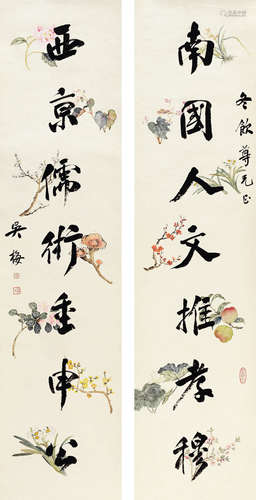 南國人文推孝穆
冬飲尊兄正
西京儒術重申公
吳梅